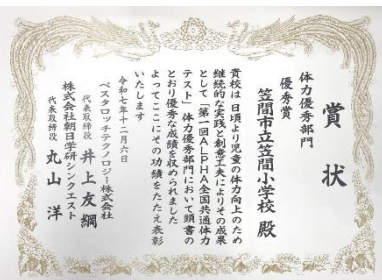 賞状
体力優秀部門
優秀賞
笠間市立笠間小学校 殿
貴校は日頃より児童の体力向上のため
継続的な実践と創意工夫によりその成果
として「第一回ALPHA全国共通体力
テスト」体力優秀部門において頭書の
とおり優秀な成績を収められました
よってここにその功績をたたえ表彰
いたします
令和七年十二月六日
ペスタロッチテクノロジー株式会社
代表取締役 井上友綱
株式会社朝日学研シンクエスト
代表取締役 丸山洋